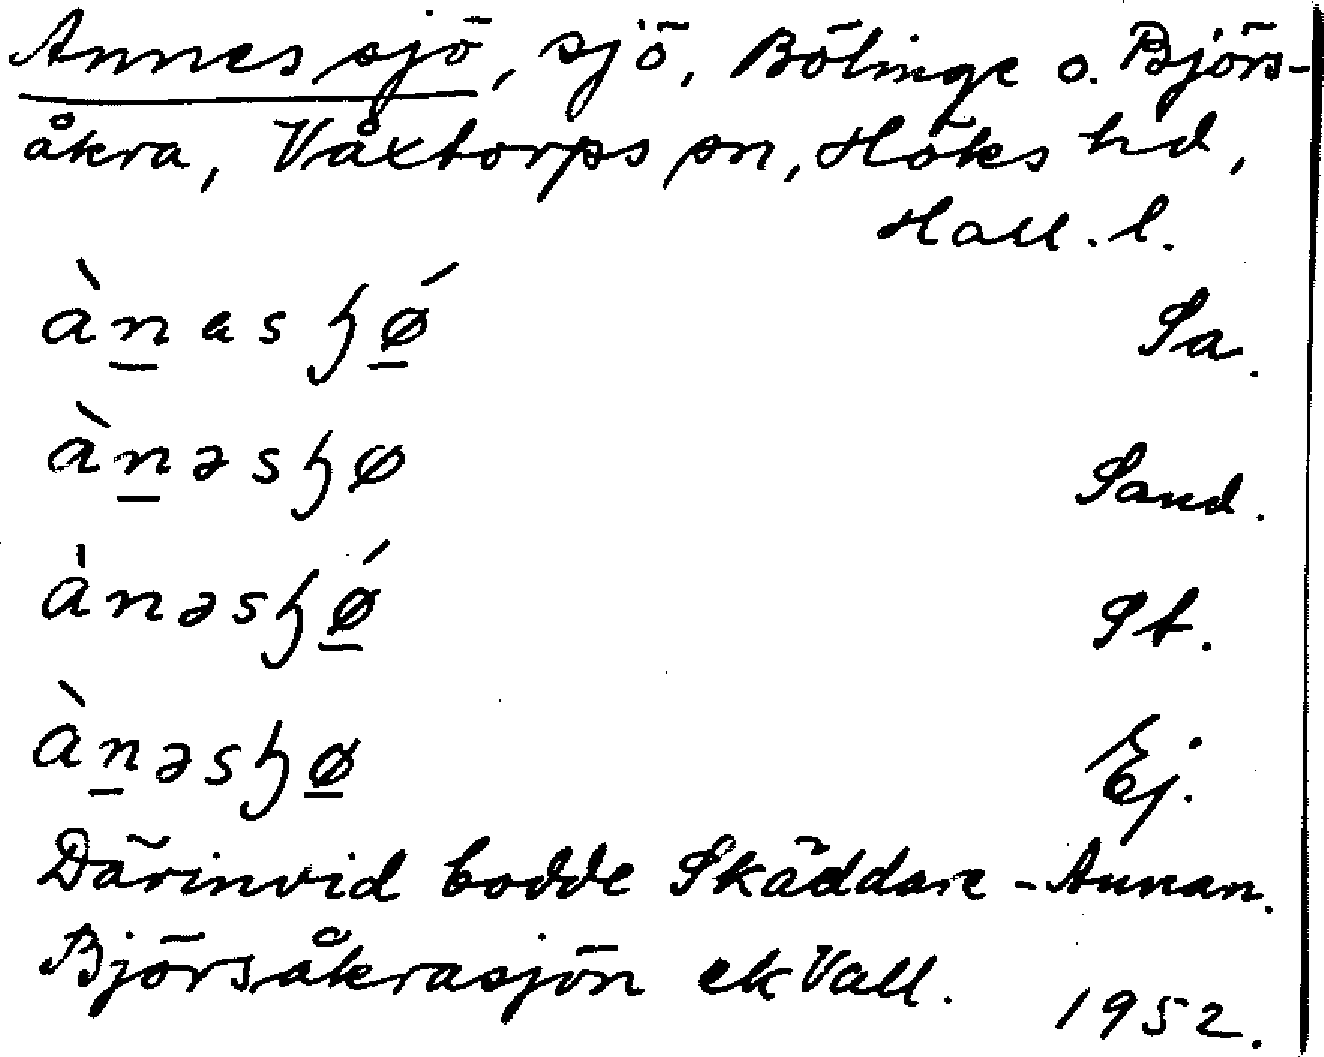 Annes sjö, sjö, Bölinge o. Björs-
åkra, Våxtorps sn, Höks hd,
Hall. l.
ànasɧǿ Sa.
ànəsɧø Sand.
ànəsɧǿ St.
ànəsɧø Ej.
Därinvid bodde Skäddare-Annan.
Björsåkrasjön ek Vall.
1952.